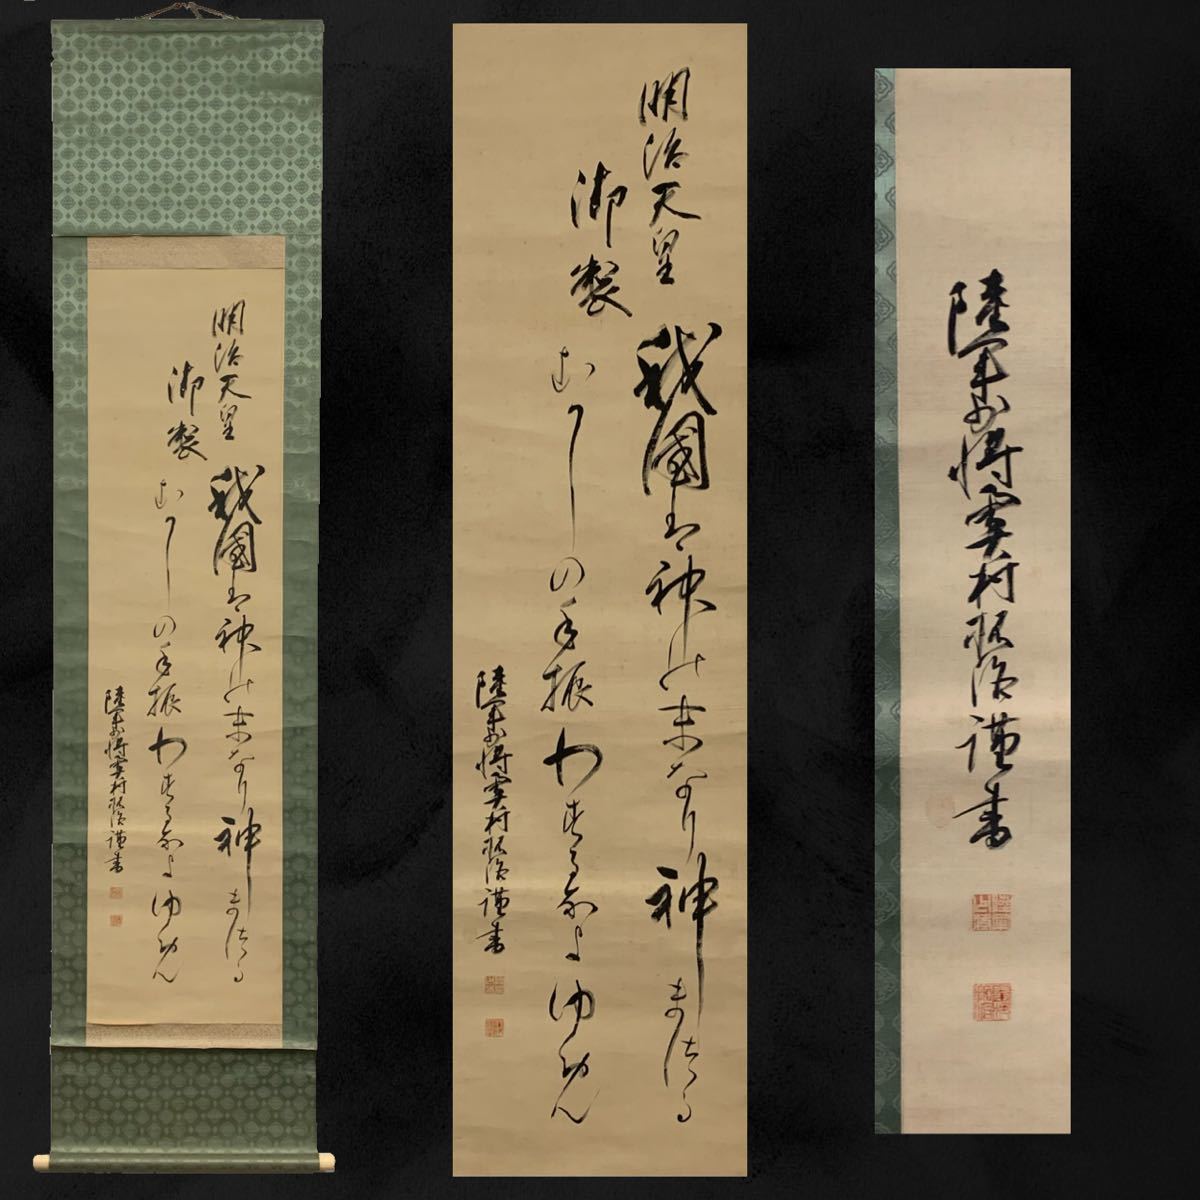 明治天皇
御製
我國は神の末なり神まつる
むかしの手振わするなよゆめ
陸軍少将奥村拓治謹書
明治天皇
御製
我國は神の末なり神まつる
むかしの手振わするなよゆめ
陸軍少将奥村拓治謹書
陸軍少将奥村拓治謹書